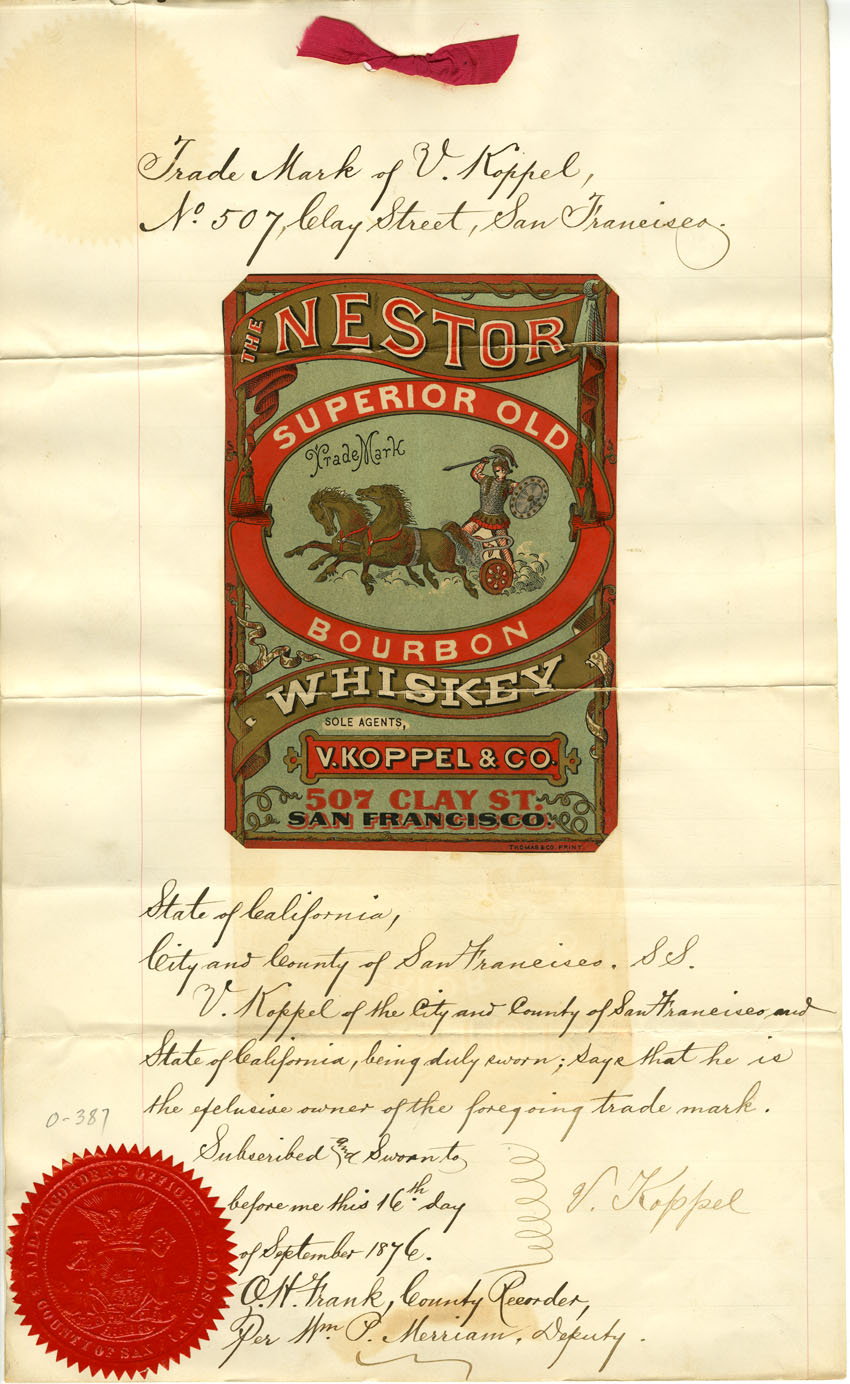 Trade Mark of V. Koppel,
No. 507, Clay Street, San Francisco.
THE NESTOR
SUPERIOR OLD
Trade Mark
BOURBON
WHISKEY
SOLE AGENTS,
V. KOPPEL & CO.
507 CLAY ST.
SAN FRANCISCO.
THOMAS & CO. PRINT.
State of California,
City and County of San Francisco. S.S.
V. Koppel of the City and County of San Francisco and
State of California, being duly sworn; says that he is
the exclusive owner of the foregoing trade mark.
Subscribed and Sworn to
before me this 16th day
V. Koppel
of September 1876.
O. H. Frank, County Recorder,
Per Wm. P. Merriam, Deputy.
O-387
RECORDER'S OFFICE
COUNTY OF SAN FRANCISCO